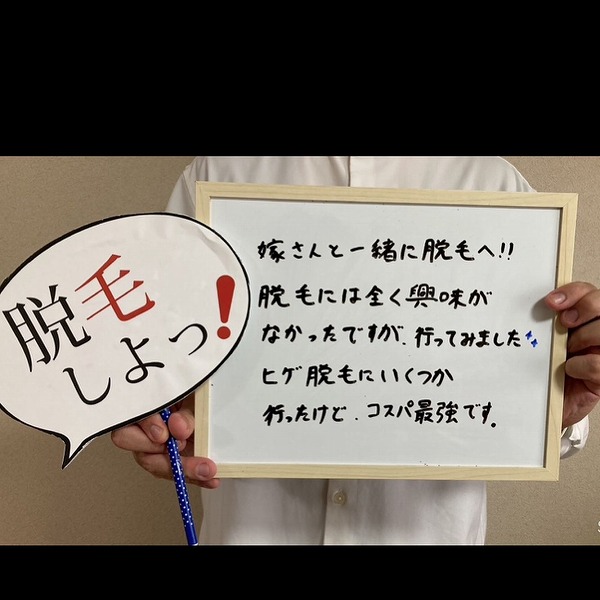 脱毛
しよっ！
嫁さんと一緒に脱毛へ!!
脱毛には全く興味が
なかったですが、行ってみました
ヒゲ脱毛にいくつか
行ったけど、コスパ最強です。